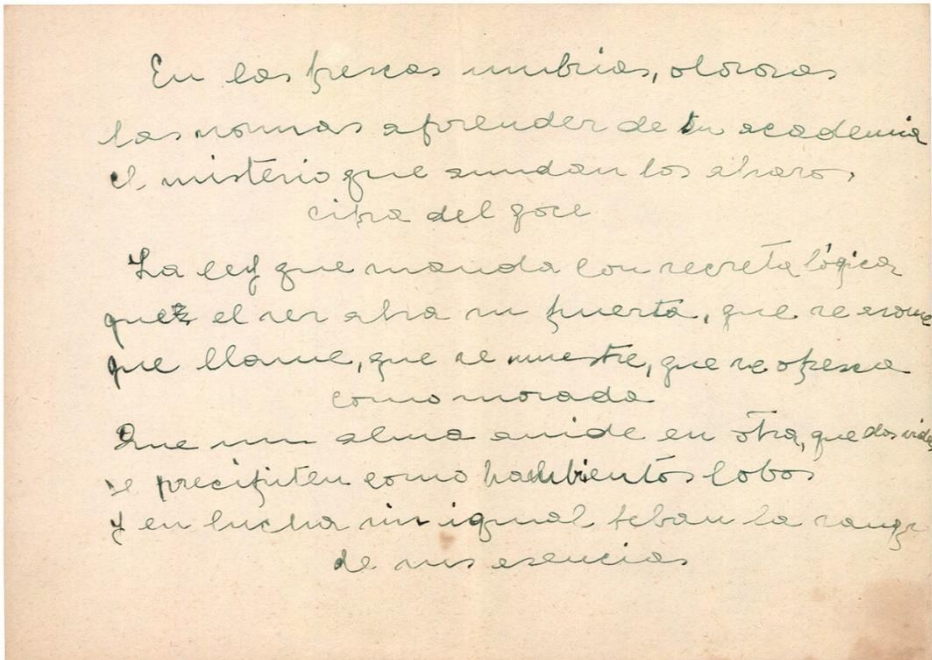 En las frescas umbrías, olorosas
las normas aprender de tu academia
el misterio que anudan los abrazos,
cifra del goce
La ley que manda con secreta lógica
que el ser abra su puerta, que se asome
que llame, que se muestre, que se ofresca
como morada
Que un alma anide en otra, que dos vidas
se precipiten como hambrientos lobos
y en lucha sin igual beban la sangre
de sus esencias